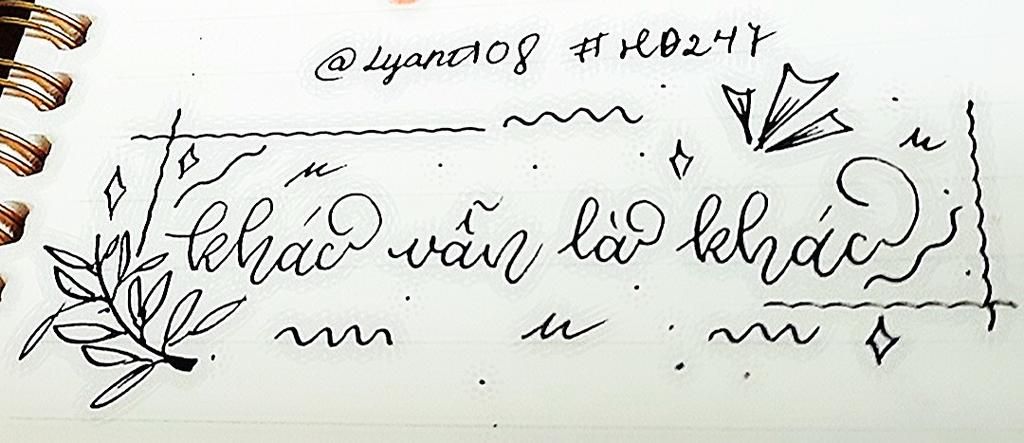 @Lyano108 #HD247
khác vẫn là khác